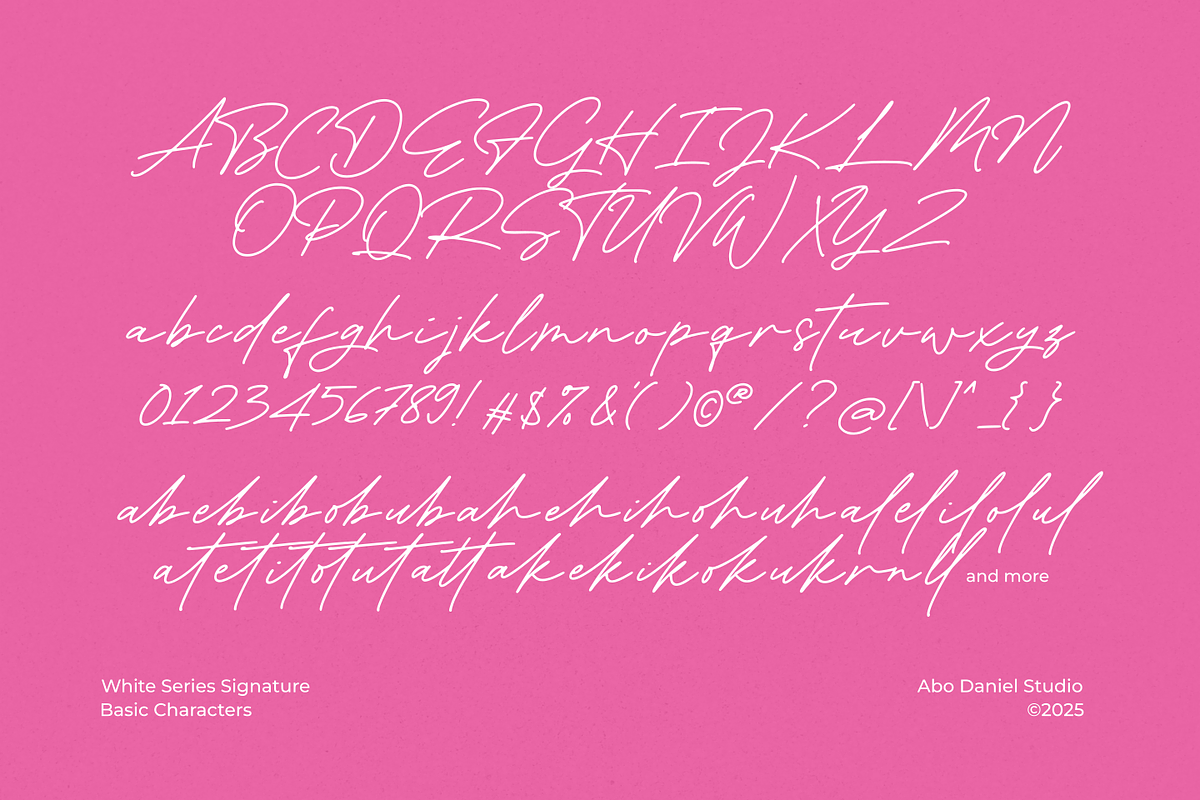 ABCDEFGHIJKLMN
OPQRSTUVWXYZ
abcdefghijklmnopqrstuvwxyz
0123456789! #$%&'( )©® / ? @[\/]^_{ }
abebibobubahehihohuhalelilolul
atetitotutattakekikokukrnll and more
White Series Signature
Basic Characters
Abo Daniel Studio
©2025